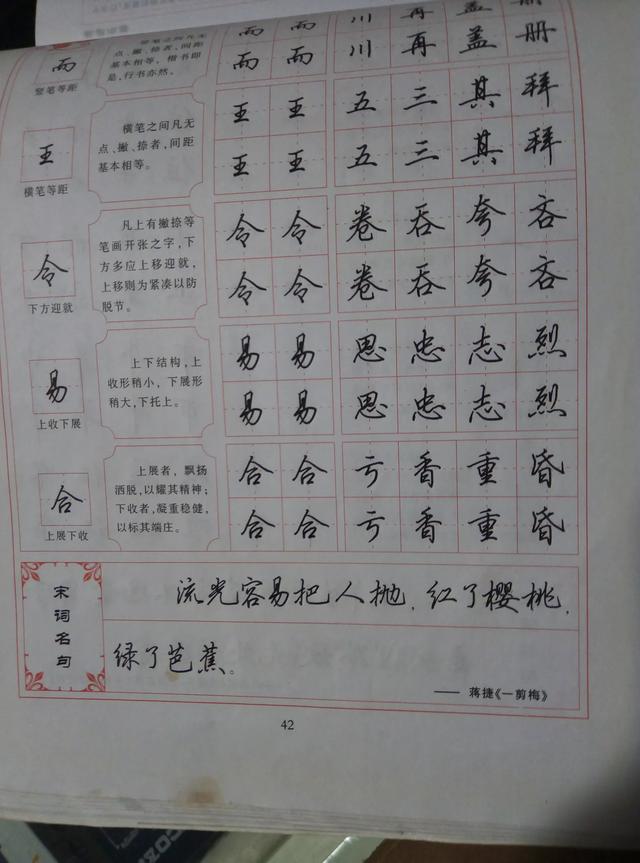 竖笔之间凡无
点、撇、捺者,间距
基本相等。楷书即
是,行书亦然。
而
竖笔等距
川 再 盖 册
而 而 川 再 盖 册
王
横笔等距
横笔之间凡无
点、撇、捺者,间距
基本相等。
王 王 五 三 其 拜
王 王 五 三 其 拜
令
下方迎就
凡上有撇捺等
笔画开张之字,下
方多应上移迎就,
上移则为紧凑以防
脱节。
令 令 卷 吞 夸 吝
令 令 卷 吞 夸 吝
易
上收下展
上下结构,上
收形稍小,下展形
稍大,下托上。
易 易 思 忠 志 烈
易 易 思 忠 志 烈
合
上展下收
上展者,飘扬
洒脱,以耀其精神;
下收者,凝重稳健,
以标其端庄。
合 合 亏 香 重 昏
合 合 亏 香 重 昏
宋词名句
流光容易把人抛,红了樱桃,
绿了芭蕉。
——蒋捷《一剪梅》
42